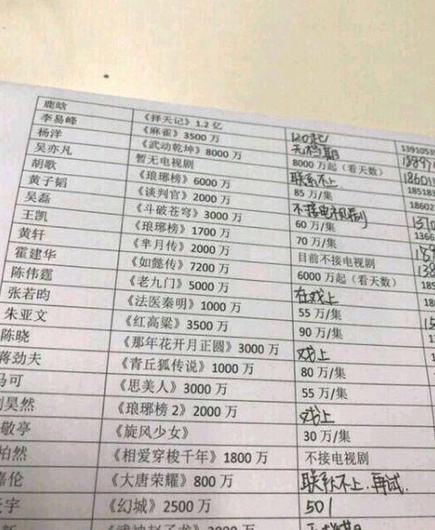 鹿晗 《择天记》1.2 亿 120起 1391053
李易峰 《麻雀》3500 万 无档期
杨洋 《武动乾坤》8000 万 8000 万起（看天数）
吴亦凡 暂无电视剧 联系不上
胡歌 《琅琊榜》6000 万 85 万/集
黄子韬 《谈判官》2000 万 不接电视剧
吴磊 《斗破苍穹》3000 万 60 万/集
王凯 《琅琊榜》1700 万 70 万/集
黄轩 《芈月传》2000 万 目前不接电视剧
霍建华 《如懿传》7200 万 6000 万起（看天数）
陈伟霆 《老九门》5000 万 在戏上
张若昀 《法医秦明》1000 万 55 万/集
朱亚文 《红高粱》3500 万 90 万/集
陈晓 《那年花开月正圆》3000 万 戏上
蒋劲夫 《青丘狐传说》1000 万 80 万/集
马可 《思美人》3000 万 55 万/集
昊然 《琅琊榜 2》2000 万 戏上
敬亭 《旋风少女》 30 万/集
柏然 《相爱穿梭千年》1800 万 不接电视剧
嘉伦 《大唐荣耀》800 万 联系不上，再试.
宇 《幻城》2500 万